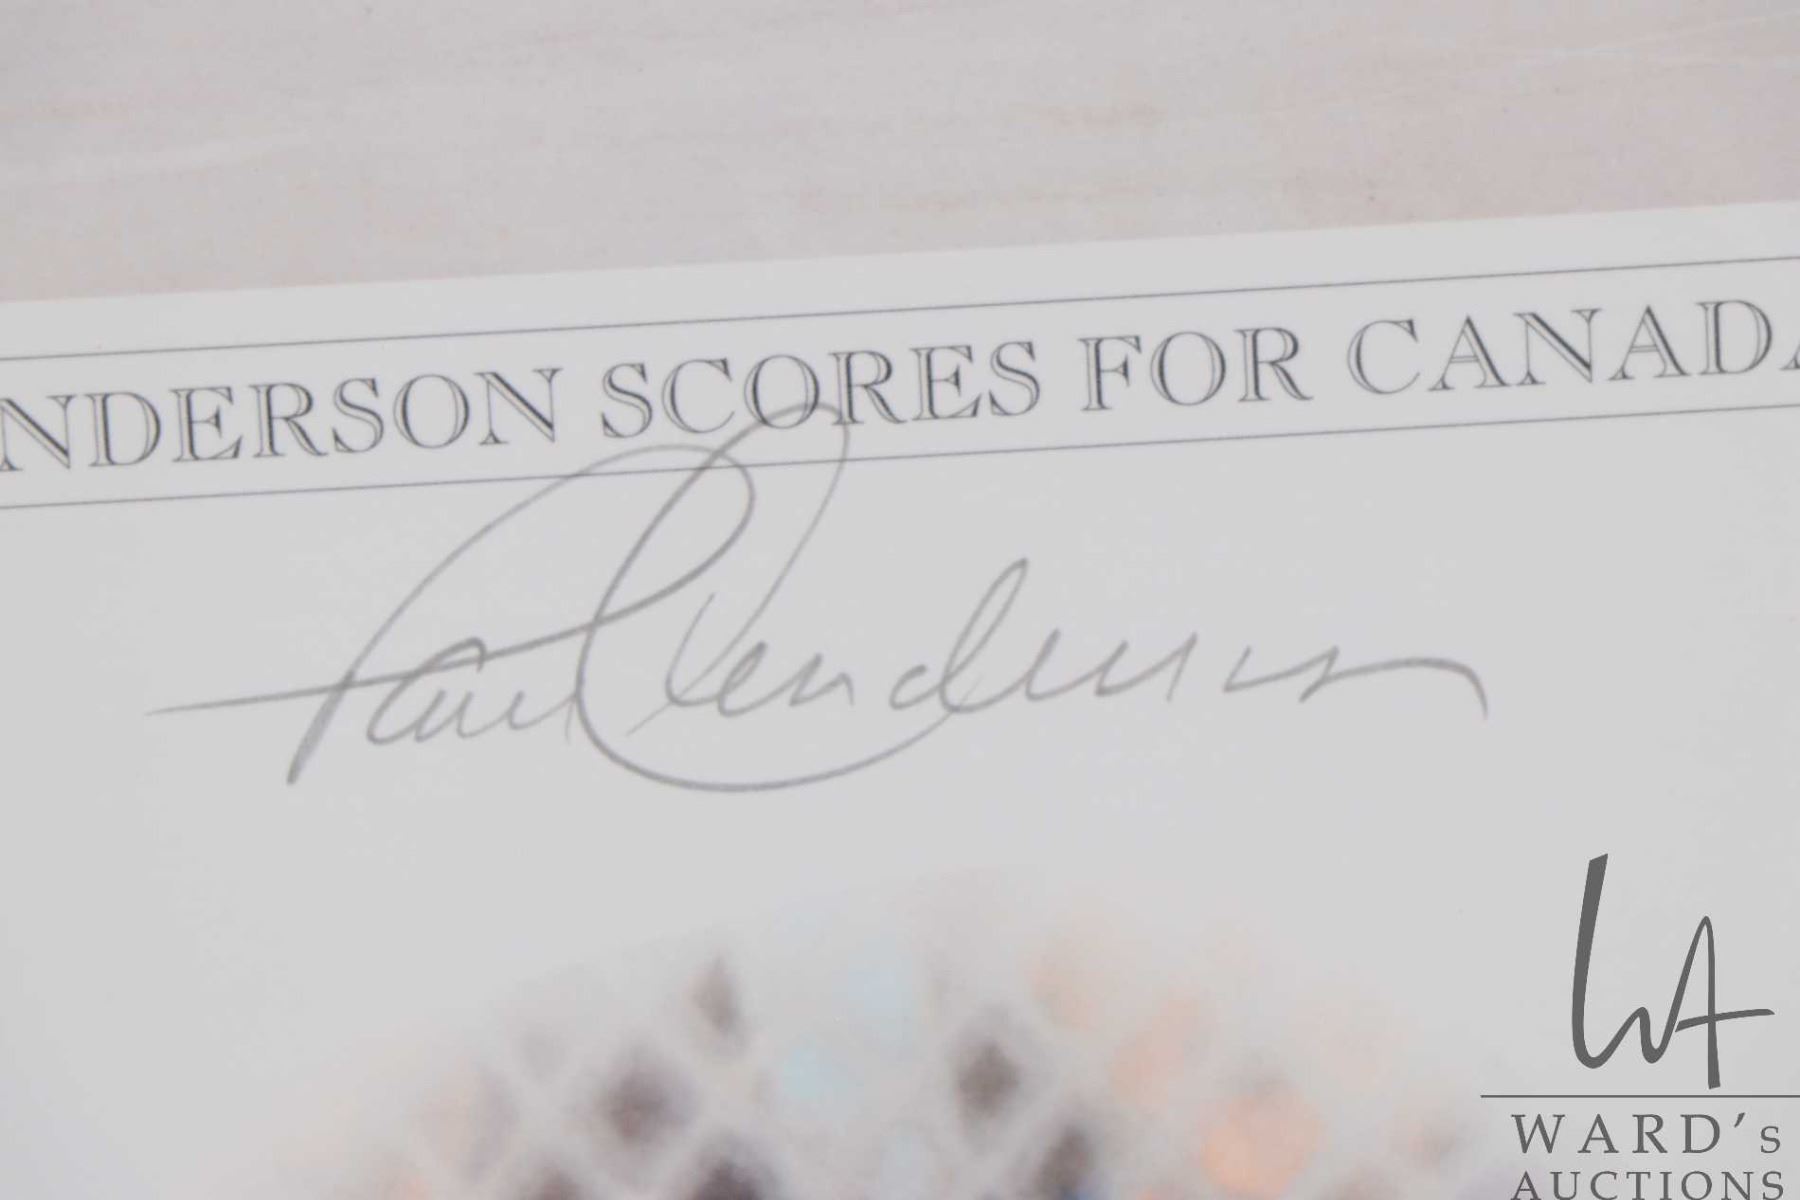 NDERSON SCORES FOR CANADA
Paul Henderson
WA
WARD's
AUCTIONS